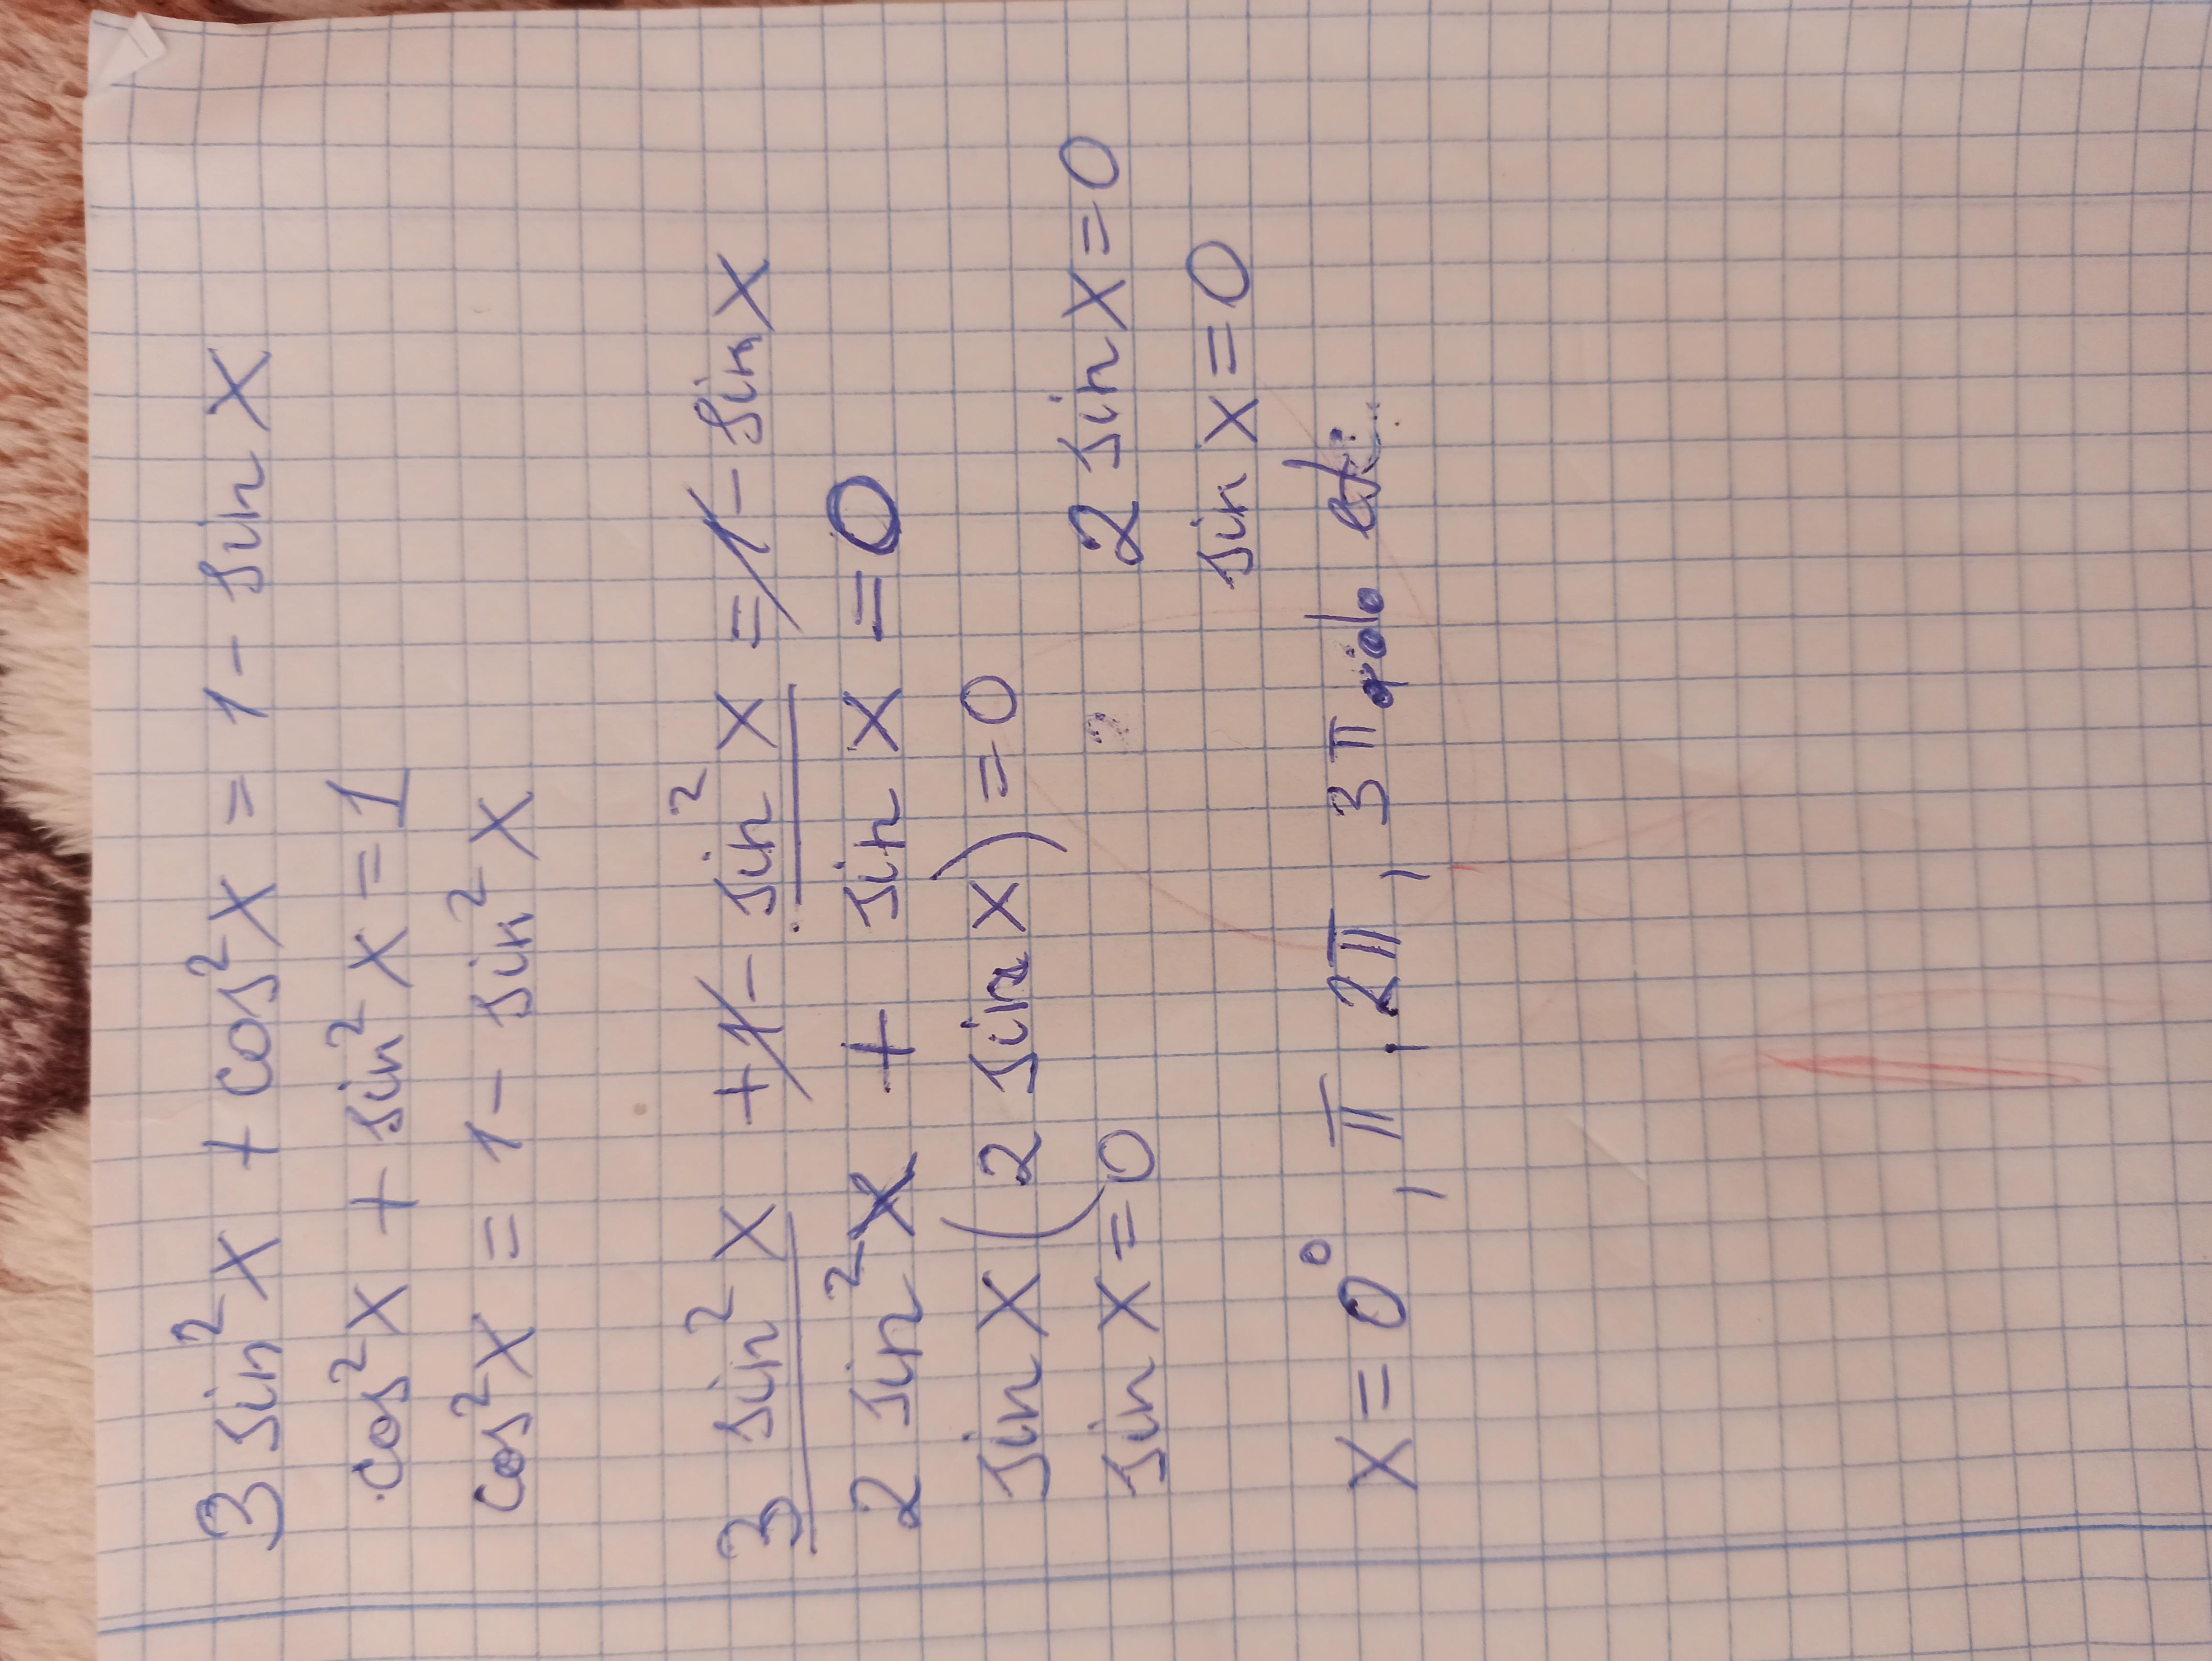 3 sin²x + cos²x = 1 - sin x
cos²x + sin²x = 1
cos²x = 1 - sin²x
3 sin²x + 1 - sin²x = 1 - sin x
2 sin²x + sin x = 0
sin x (2 sin x) = 0
sin x = 0 2 sin x = 0
sin x = 0
x = 0°, π, 2π, 3π